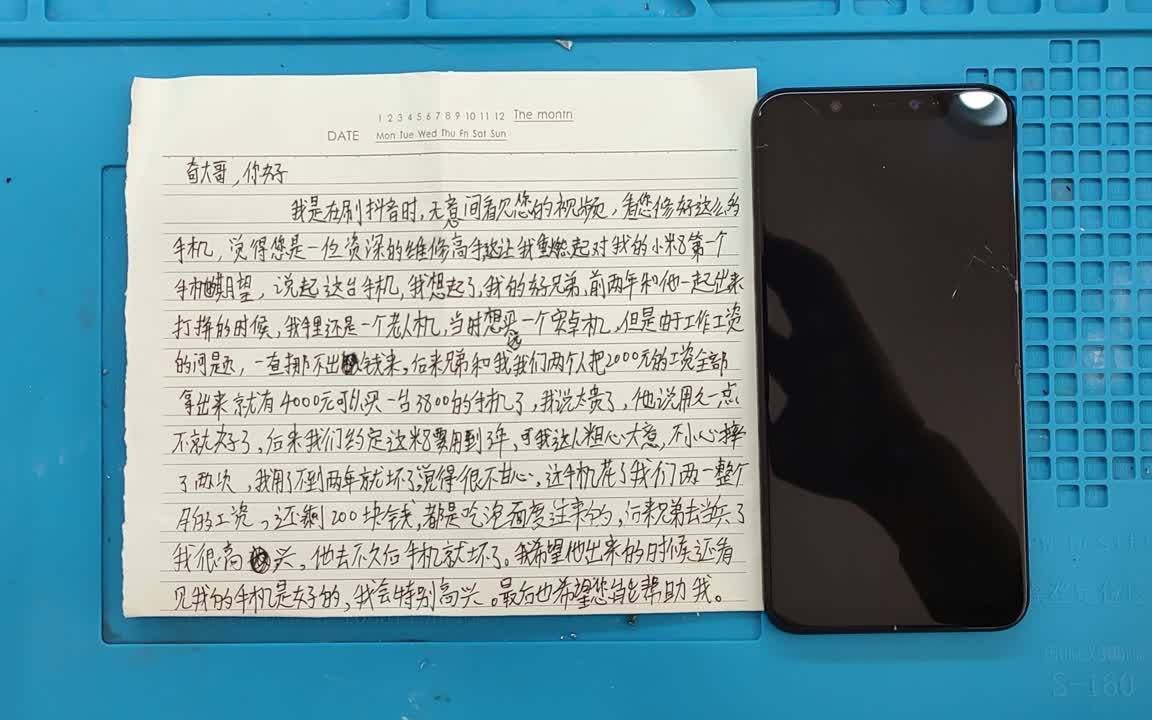 1 2 3 4 5 6 7 8 9 10 11 12 The month
DATE Mon Tue Wed Thu Fri Sat Sun
奇大哥,你好
我是在刷抖音时,无意间看见您的视频,看您修好这么多
手机,觉得您是一位资深的维修高手,这让我重燃起对我的小米8第一个
手机的期望,说起这台手机,我想起了我的好兄弟,前两年和他一起出来
打拼的时候,我手里还是一个老人机,当时想买一个安卓机,但是由于工作工资
的问题,一直挪不出钱来,后来兄弟和我我们两个人把2000元的工资全部
拿出来就有4000元可以买一台3800的手机了,我说太贵了,他说用久一点
不就好了,后来我们约定这米8要用到3年,可我这人粗心大意,不小心摔
了两次,我用了不到两年就坏了,觉得很不甘心,这手机花了我们两一整个
月的工资,还剩200块钱,都是吃泡面度过来的,后来兄弟去当兵了
我很高兴,他去不久后手机就坏了。我希望他出来的时候还看
见我的手机是好的,我会特别高兴。最后也希望您能帮助我。
S-160